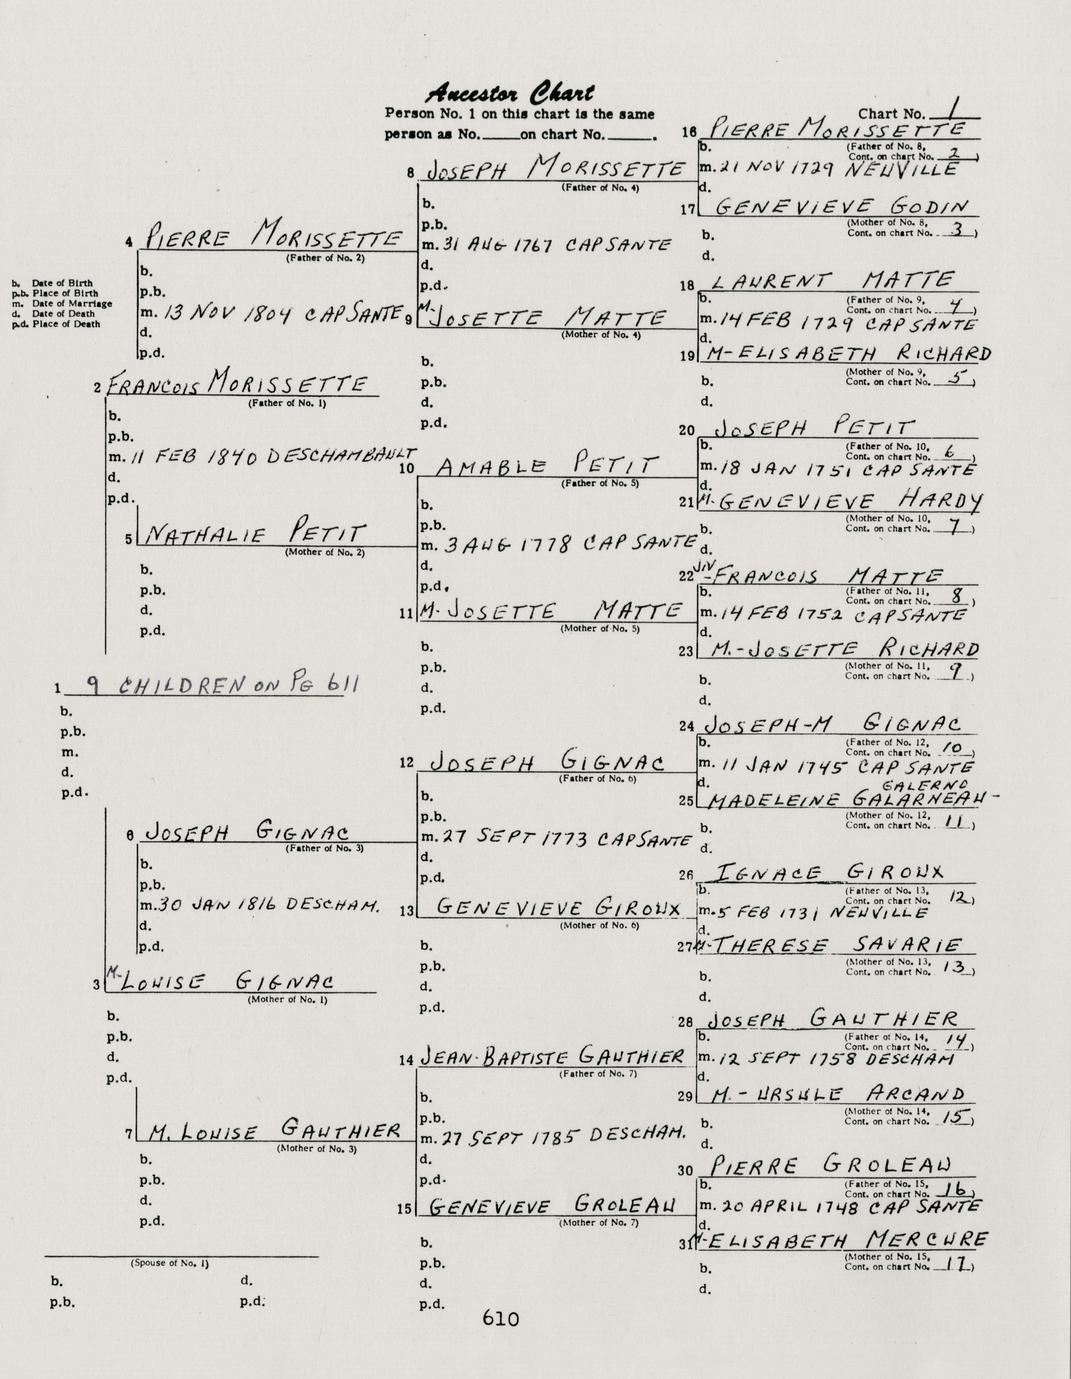 Ancestor Chart
Person No. 1 on this chart is the same
person as No.____on chart No.____.
Chart No. 1
b. Date of Birth
p.b. Place of Birth
m. Date of Marriage
d. Date of Death
p.d. Place of Death
1 9 CHILDREN ON PG 611
b.
p.b.
m.
d.
p.d.
2 FRANCOIS MORISSETTE
(Father of No. 1)
b.
p.b.
m. 11 FEB 1840 DESCHAMBAULT
d.
p.d.
3 M-LOUISE GIGNAC
(Mother of No. 1)
b.
p.b.
d.
p.d.
4 PIERRE MORISSETTE
(Father of No. 2)
b.
p.b.
m. 13 NOV 1804 CAP SANTE
d.
p.d.
5 NATHALIE PETIT
(Mother of No. 2)
b.
p.b.
d.
p.d.
6 JOSEPH GIGNAC
(Father of No. 3)
b.
p.b.
m. 30 JAN 1816 DESCHAM.
d.
p.d.
7 M. LOUISE GAUTHIER
(Mother of No. 3)
b.
p.b.
d.
p.d.
(Spouse of No. 1)
b. d.
p.b. p.d.
8 JOSEPH MORISSETTE
(Father of No. 4)
b.
p.b.
m. 31 AUG 1767 CAP SANTE
d.
p.d.
9 M-JOSETTE MATTE
(Mother of No. 4)
b.
p.b.
d.
p.d.
10 AMABLE PETIT
(Father of No. 5)
b.
p.b.
m. 3 AUG 1778 CAP SANTE
d.
p.d.
11 M-JOSETTE MATTE
(Mother of No. 5)
b.
p.b.
d.
p.d.
12 JOSEPH GIGNAC
(Father of No. 6)
b.
p.b.
m. 27 SEPT 1773 CAP SANTE
d.
p.d.
13 GENEVIEVE GIROUX
(Mother of No. 6)
b.
p.b.
d.
p.d.
14 JEAN-BAPTISTE GAUTHIER
(Father of No. 7)
b.
p.b.
m. 27 SEPT 1785 DESCHAM.
d.
p.d.
15 GENEVIEVE GROLEAU
(Mother of No. 7)
b.
p.b.
d.
p.d.
16 PIERRE MORISSETTE
b. (Father of No. 8,
Cont. on chart No. 2)
m. 21 NOV 1729 NEUVILLE
d.
17 GENEVIEVE GODIN
(Mother of No. 8,
b. Cont. on chart No. 3)
d.
18 LAURENT MATTE
b. (Father of No. 9,
Cont. on chart No. 4)
m. 14 FEB 1729 CAP SANTE
d.
19 M-ELISABETH RICHARD
(Mother of No. 9,
b. Cont. on chart No. 5)
d.
20 JOSEPH PETIT
b. (Father of No. 10,
Cont. on chart No. 6)
m. 18 JAN 1751 CAP SANTE
d.
21 M-GENEVIEVE HARDY
(Mother of No. 10,
b. Cont. on chart No. 7)
d.
22 J.N-FRANCOIS MATTE
b. (Father of No. 11,
Cont. on chart No. 8)
m. 14 FEB 1752 CAP SANTE
d.
23 M.-JOSETTE RICHARD
(Mother of No. 11,
b. Cont. on chart No. 9)
d.
24 JOSEPH-M GIGNAC
b. (Father of No. 12,
Cont. on chart No. 10)
m. 11 JAN 1745 CAP SANTE
d. GALERNO
25 MADELEINE GALARNEAU-
(Mother of No. 12,
b. Cont. on chart No. 11)
d.
26 IGNACE GIROUX
b. (Father of No. 13,
Cont. on chart No. 12)
m. 5 FEB 1731 NEUVILLE
d.
27 M-THERESE SAVARIE
(Mother of No. 13,
b. Cont. on chart No. 13)
d.
28 JOSEPH GAUTHIER
b. (Father of No. 14,
Cont. on chart No. 14)
m. 12 SEPT 1758 DESCHAM
d.
29 M.-URSULE ARCAND
(Mother of No. 14,
b. Cont. on chart No. 15)
d.
30 PIERRE GROLEAU
b. (Father of No. 15,
Cont. on chart No. 16)
m. 20 APRIL 1748 CAP SANTE
d.
31 M-ELISABETH MERCURE
(Mother of No. 15,
b. Cont. on chart No. 17)
d.
610